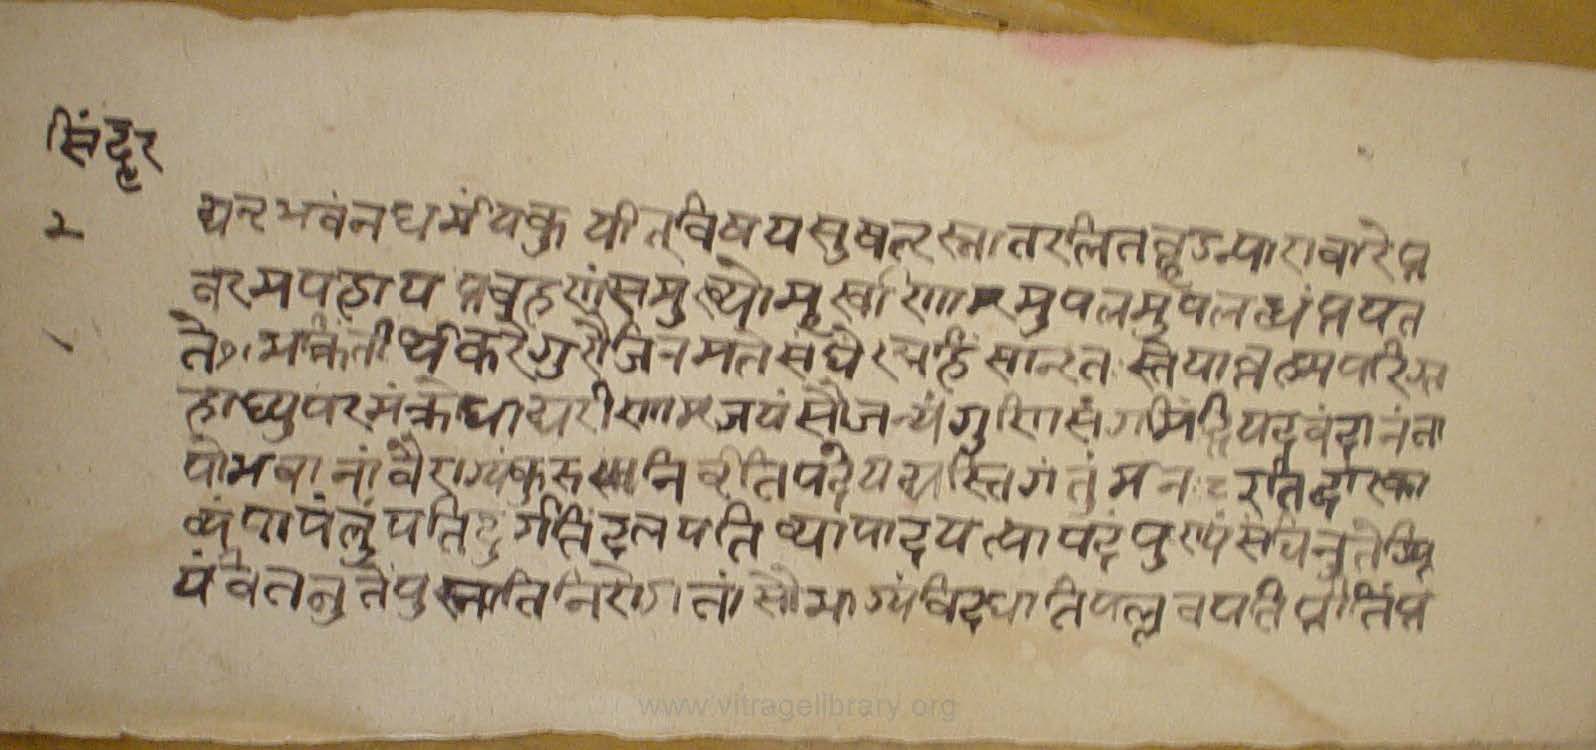 सिंदूर
२
यनरभवंनधर्मंयकुर्यातविषयसुषतरस्नातरलितब्रूडन्पारावारेप्र
वरमपहाय प्रवुहणंसमुख्योमूर्खाणामुपलमुपलब्धंप्रयत
ते७ भक्तिंतीर्थंकरेगुरौजिनमतेसंघेचहिंसानृतस्तेयाब्रह्मपरिग्र
हाद्युपरमंक्रोधाद्यरीणामजयंसौजन्यंगुणिसंगमिंद्रियदवंदानंता
पोभवानांवैराग्यंकुरुनिर्वृतिपदेयद्यस्तिगंतुंमनः
व्यंपापंलुंपतिदुर्गतिंदलयतिव्यापादयत्यापदंपुण्यंसंचिनुतेश्रि
यंवितनुतेपुस्नातिनिरोगतांसौभाग्यंविदधातिपल्लवयतिप्रीतिंप्र
www.vitragelibrary.org